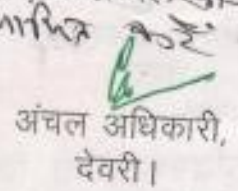 करें
अंचल अधिकारी,
देवरी।